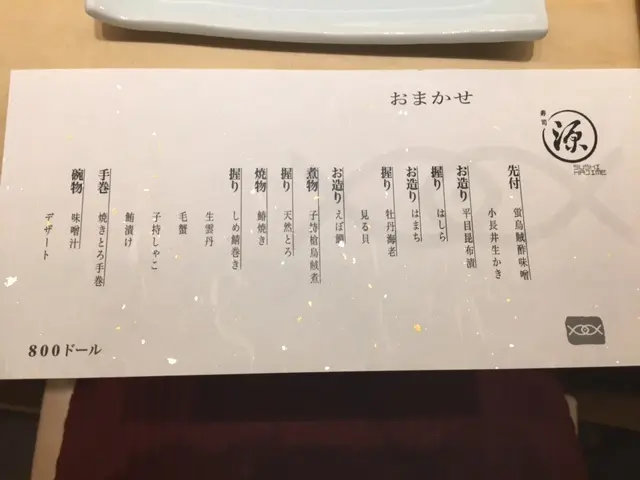 おまかせ
寿司
源
SUSHI
HAJIME
先付 蛍烏賊酢味噌
小長井生かき
お造り 平目昆布漬
握り はしら
お造り はまち
握り 牡丹海老
見る貝
お造り えぼ鯛
煮物 子持槍烏賊煮
握り 天然とろ
焼物 鰆焼き
握り しめ鯖巻き
生雲丹
毛蟹
子持しゃこ
鮪漬け
手巻 焼きとろ手巻
碗物 味噌汁
デザート
800ドール